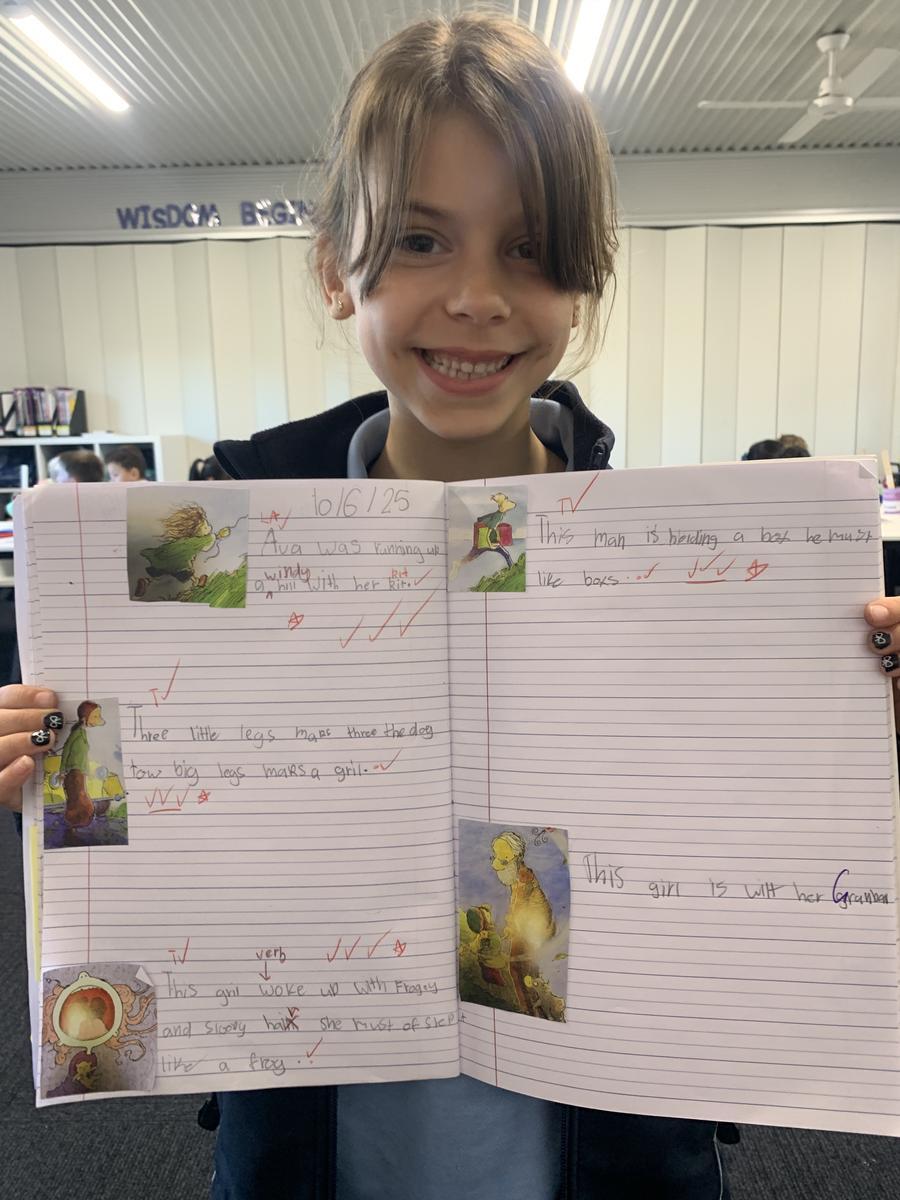 WISDOM BEGIN
10/6/25
Ava was running up
windy
a hill with her
This man is holding a box he must
like boxs...
Three little legs maks three the dog
tow big legs maks a gril..
verb
This gril woke up with Frogey
and hair she must of slept
like a frog..
This girl is witt her